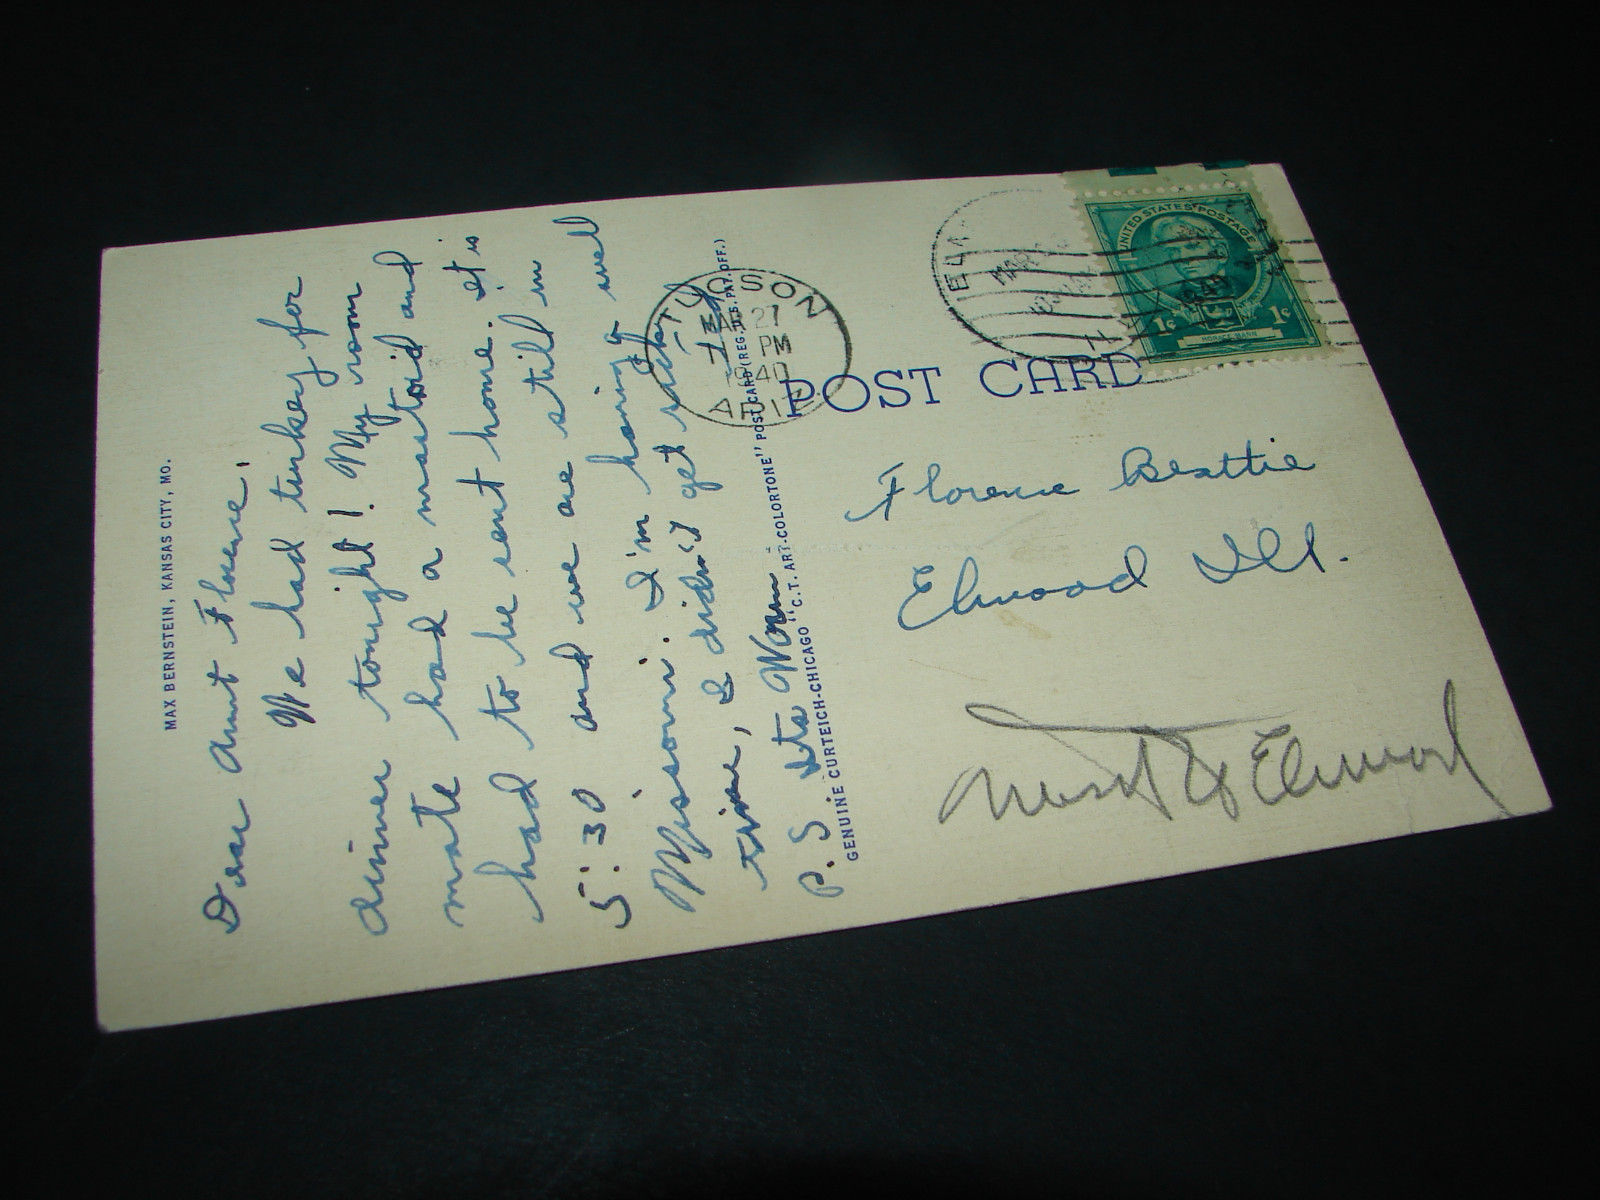 MAX BERNSTEIN, KANSAS CITY, MO.
Dear Aunt Florence,
We had turkey for
dinner tonight! My room
mate had a mastoid and
had to be sent home. It is
5:30 and we are still in
Missouri. I'm having a well
time, I didn't get sick
P.S. Its Warm
GENUINE CURTEICH-CHICAGO "C.T. ART-COLORTONE" POST CARD (REG. U.S. PAT. OFF.)
TUCSON
MAR 27
PM
1940
ARIZ
UNITED STATES POSTAGE
1¢ 1¢
HORACE MANN
POST CARD
Florence Beattie
Elwood Ill.
Elwood